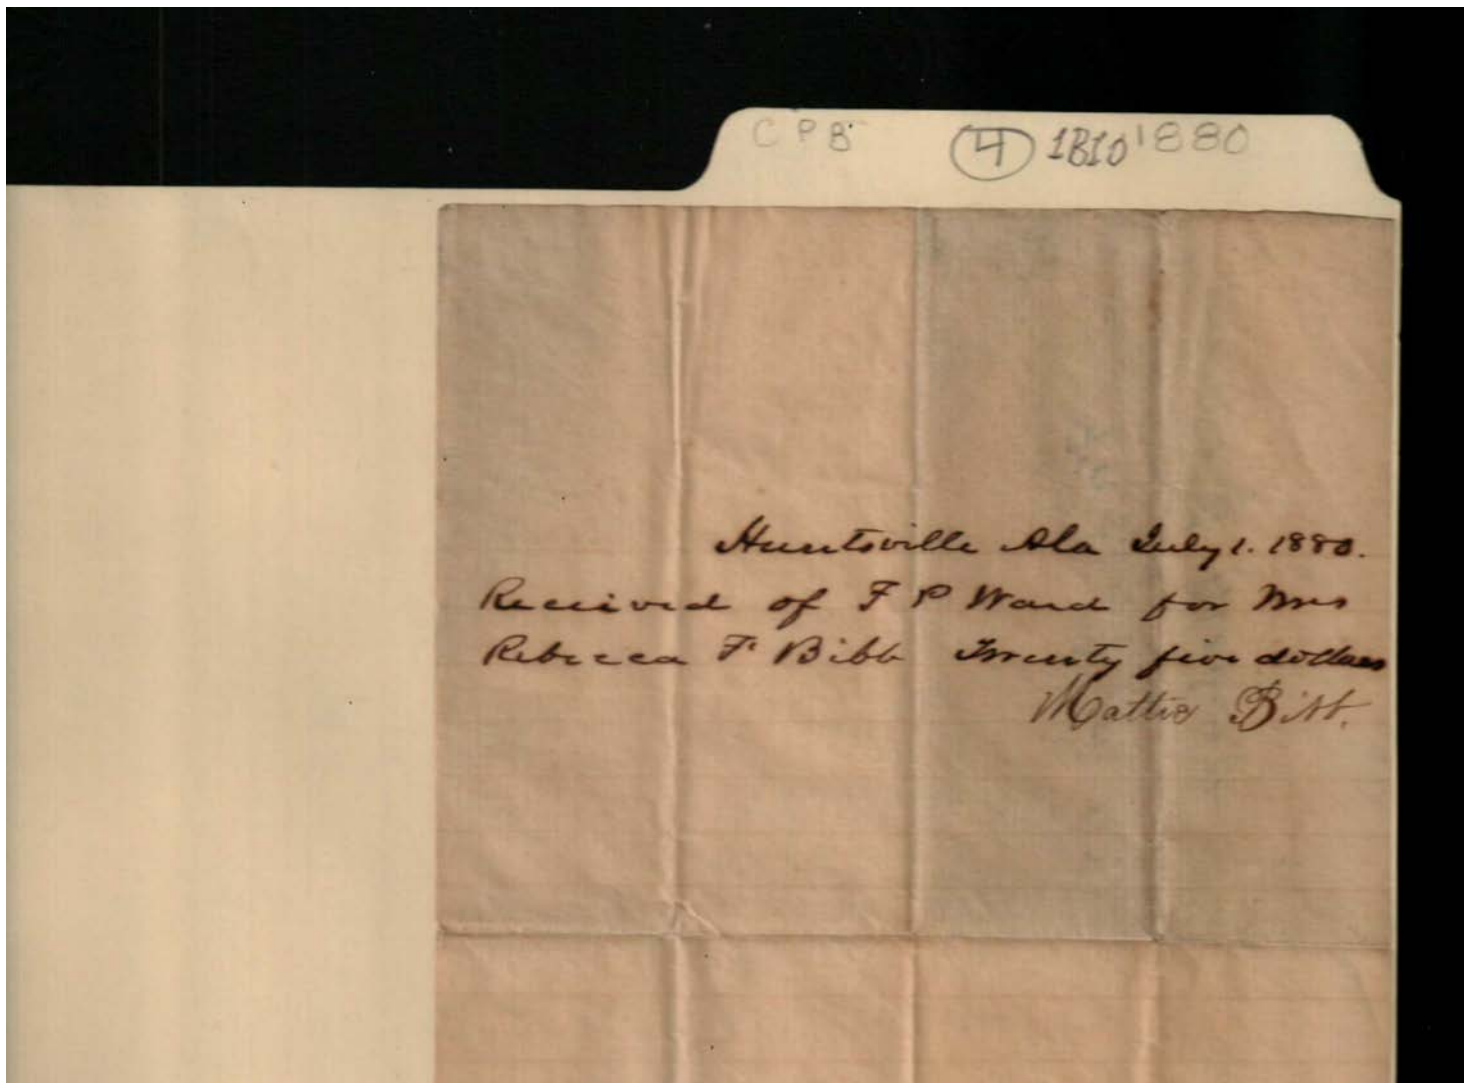 C P B 4 1B10 1880
Huntsville Ala July 1. 1880.
Received of F P Ward for Mrs
Rebecca F Bibb Twenty five dollars
Mattie Bibb.